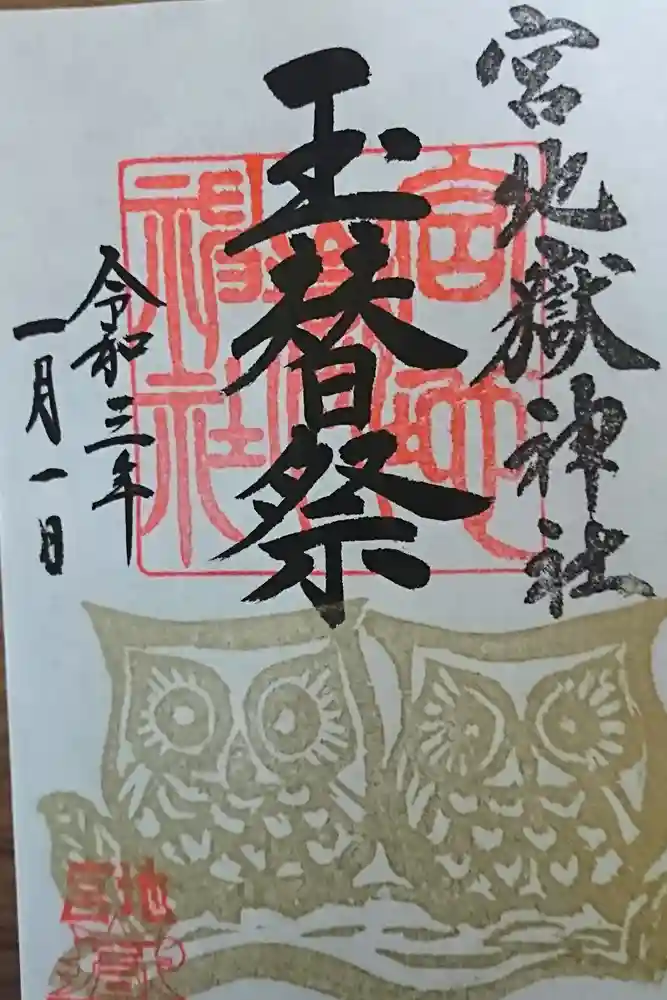 宮地嶽神社
玉替祭
令和三年
一月一日
宮地
嶽
神社